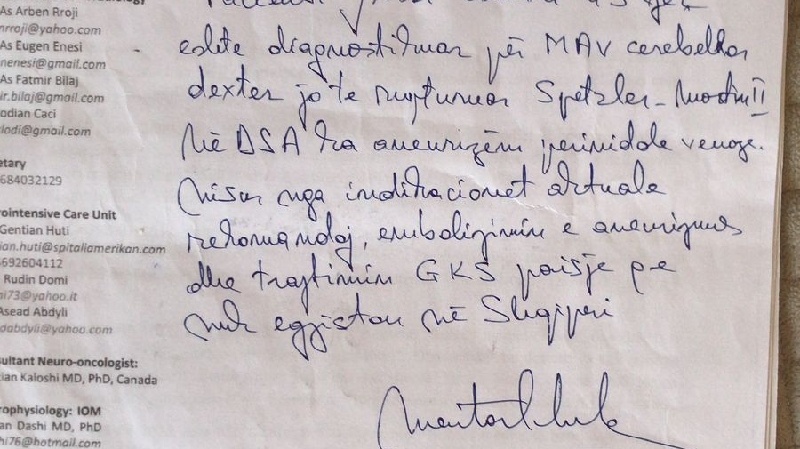 As Arben Rroji
nrroji@yahoo.com
As Eugen Enesi
nenesi@gmail.com
As Fatmir Bilaj
ir.bilaj@gmail.com
odian Caci
lodi@gmail.com
etary
684032129
rointensive Care Unit
Gentian Huti
ian.huti@spitaliamerikan.com
692604112
Rudin Domi
ni73@yahoo.it
Asead Abdyli
dabdyli@yahoo.com
sultant Neuro-oncologist:
tian Kaloshi MD, PhD, Canada
rophysiology: IOM
an Dashi MD, PhD
hi76@hotmail.com
eshte diagnostikuar për MAV cerebellar
dexter jo te rupturuar Spetzler-Martin II
Në DSA ka aneurizëm perinidale venoze.
Nisur nga indikacionet aktuale
rekomandoj, embolizimin e aneurizmes
dhe trajtimin GKS paisje qe
nuk egziston në Shqiperi